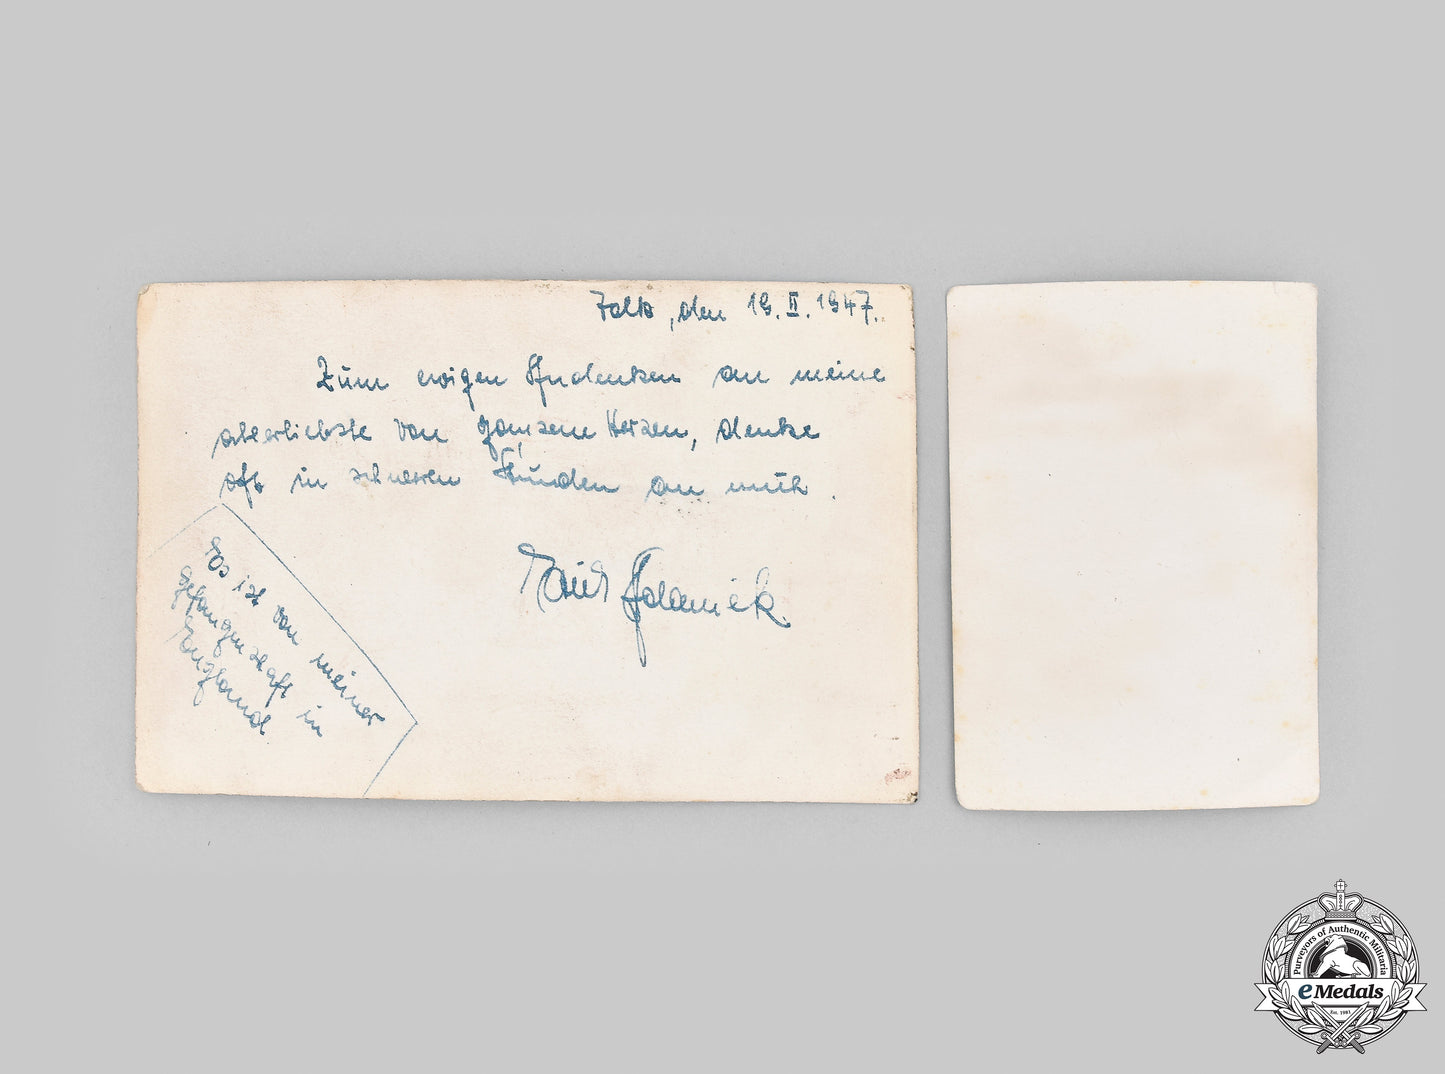 den 19. II. 1947.
Zum ewigen Andenken an meine
allerliebste von ganzem Herzen, denke
oft in schweren Stunden an mich.
Es ist von meiner
gefangenschaft in
England
Purveyors of Authentic Militaria
eMedals
Est. 1981